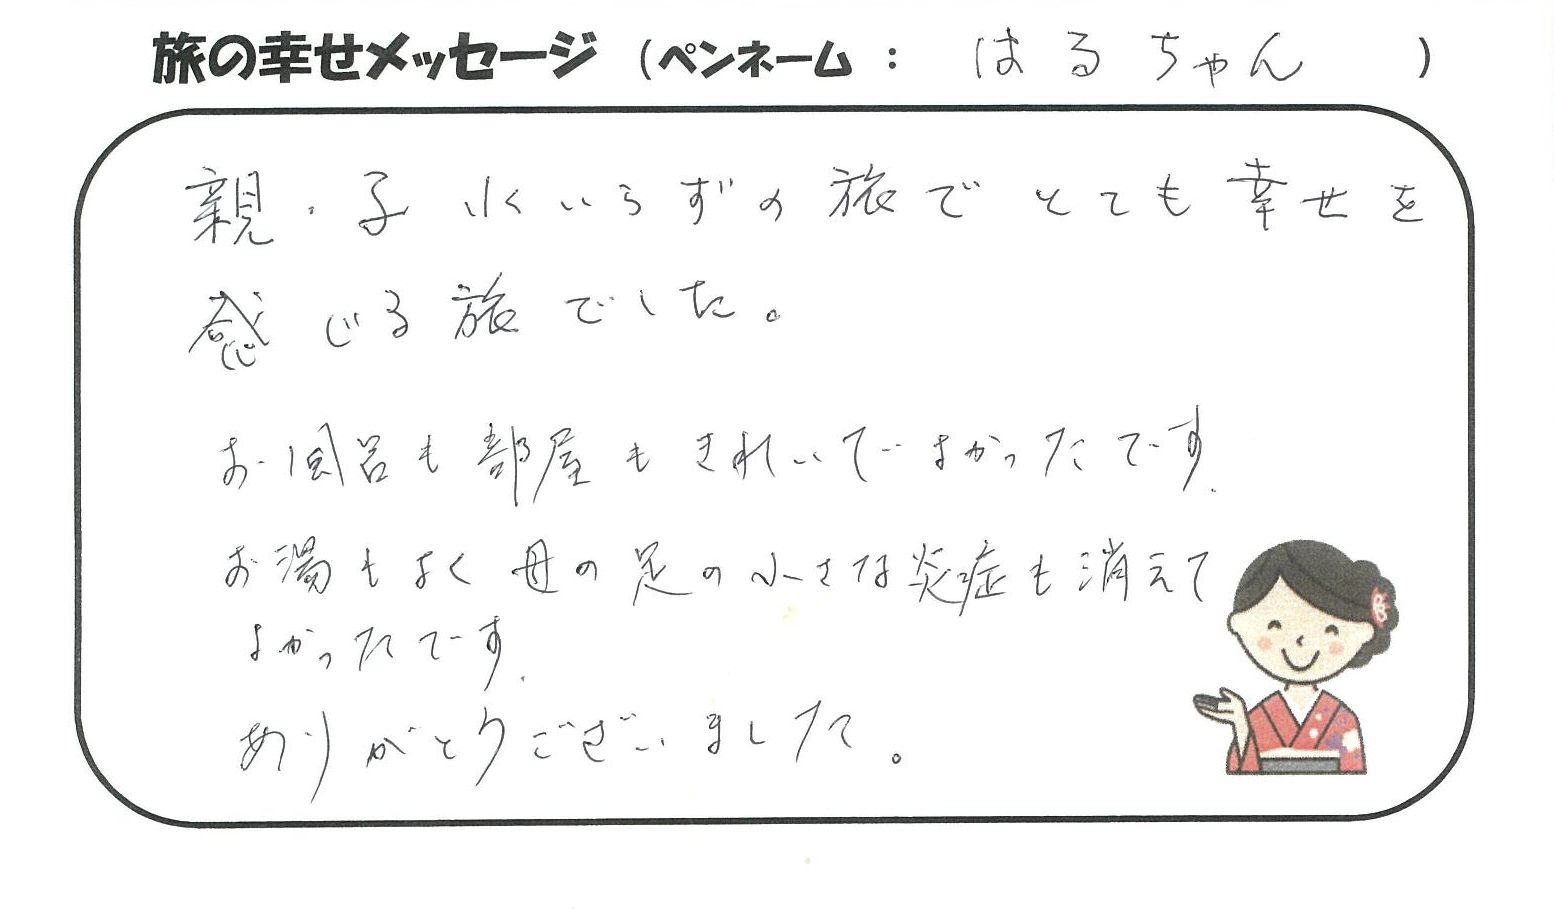 旅の幸せメッセージ（ペンネーム： はるちゃん ）
親・子水いらずの旅でとても幸せを
感じる旅でした。
お風呂も部屋もきれいでよかったです.
お湯もよく母の足の小さな炎症も消えて
よかったです.
ありがとうございました。